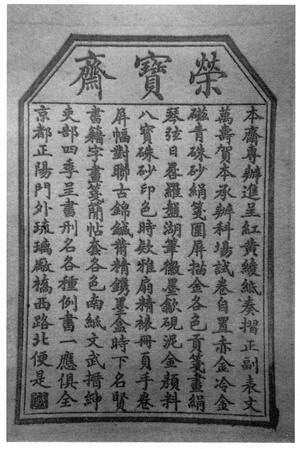 榮寶齋
本齋專辦進呈紅黃綾紙奏摺正副表文
萬壽賀本承辦科場試卷自置赤金冷金
磁青硃砂絹箋圍屏描金各色貢箋畫絹
琴弦日晷羅盤湖筆徽墨歙硯泥金顏料
八寶硃砂印色時款雅扇精裱冊頁手卷
屏幅對聯古錦鹹蒨精鐫墨盒時下名賢
書籍字畫箋簡帖套各色南紙文武搢紳
吏部四季呈書刑名各種例書一應俱全
京都正陽門外琉璃廠橋西路北便是